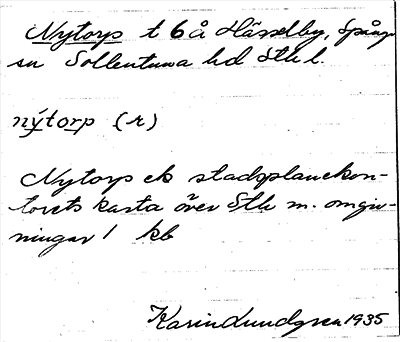 Nytorp t 6 å Hässelby, Spånga
sn Sollentuna hd Sthl.
nýtorp (r)
Nytorp ek stadsplanekon-
torets karta över Sthl m. omgiv-
ningar 1 kb
Karin Lundgren 1935